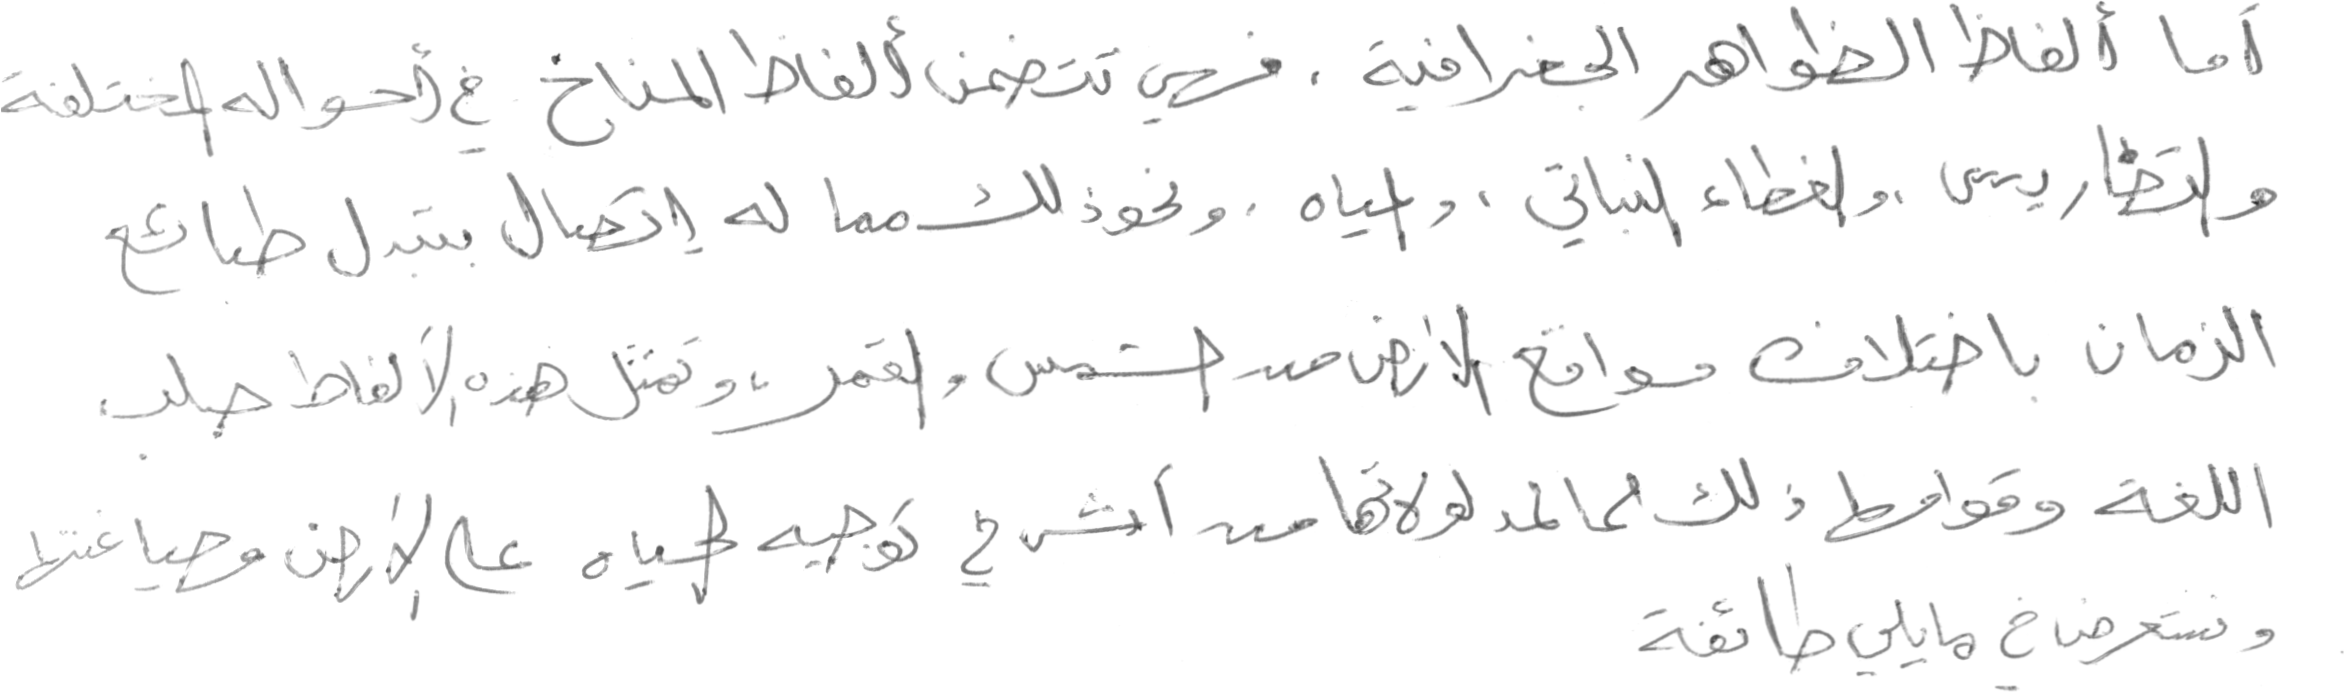 أما ألفاظ الظواهر الجغرافية ، فهي تتضمن ألفاظ المناخ في أحواله المختلفة
والتضاريس ، والغطاء النباتي ، والمياه ، ونحو ذلك مما له إتصال بتبدل طبائع
الزمان باختلاف مواقع الأرض من الشمس والقمر ، وتمثل هذه الألفاظ صلب
اللغة وقوامها ذلك لما لمدلولاتها من أثر في توجيه الحياه على الأرض وصياغتها
ونستعرض في مايلي طائفة